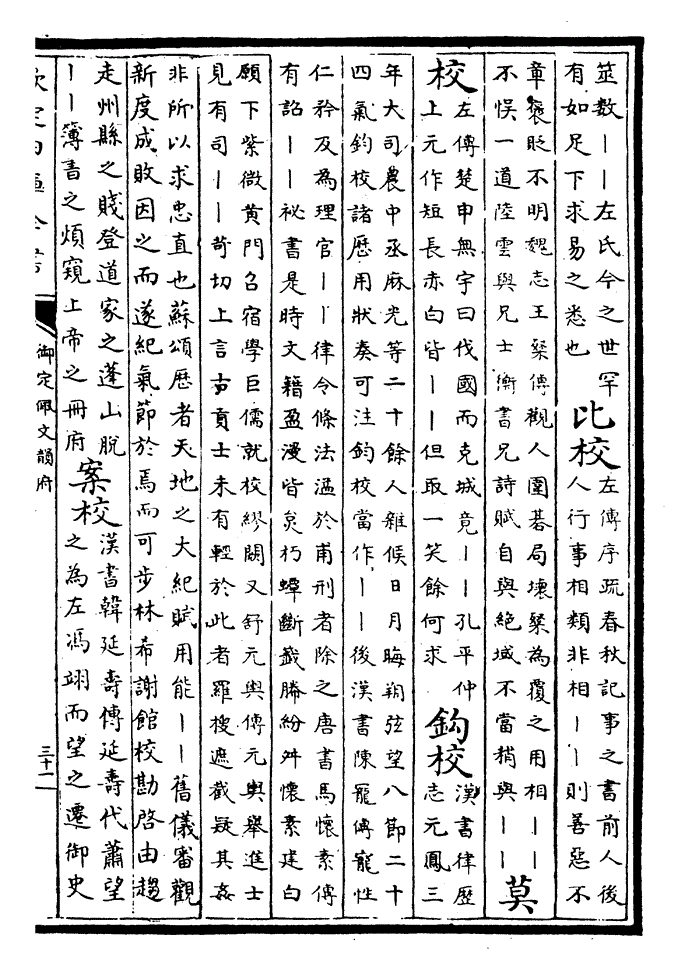 筮數丨丨左氏今之世罕
有如足下求易之悉也
比校
左傳序疏春秋記事之書前人後
人行事相類非相丨丨則善惡不
章襃貶不明魏志王粲傳觀人圍碁局壊粲為覆之用相丨丨
不悮一道陸雲與兄士衡書兄詩賦自與絶域不當稍與丨丨
莫
校
左傳楚申無宇曰伐國而克城竟丨丨孔平仲
上元作短長赤白皆丨丨但取一笑餘何求
鈎校
漢書律歴
志元鳳三
年大司農中丞麻光等二十餘人雜候日月晦朔弦望八節二十
四氣鈎校諸歴用狀奏可注鈎校當作丨丨後漢書陳寵傳寵性
仁矜及為理官丨丨律令條法溢於甫刑者除之唐書馬懷素傳
有詔丨丨祕書是時文籍盈漫皆炱朽蟫斷籖縢紛舛懷素建白
願下紫微黄門召宿學巨儒就校繆闕又舒元輿傳元輿舉進士
見有司丨丨苛切上言古貢士未有輕於此者羅搜遮截疑其姦
非所以求忠直也蘇頌歴者天地之大紀賦用能丨丨舊儀審觀
新度成敗因之而遂紀氣節於焉而可步林希謝館校勘啓由趨
走州縣之賤登道家之蓬山脱
丨丨簿書之煩窺上帝之冊府
案校
漢書韓延壽傳延壽代蕭望
之為左馮翊而望之遷御史
欽定四庫全書
御定佩文韻府
三十一